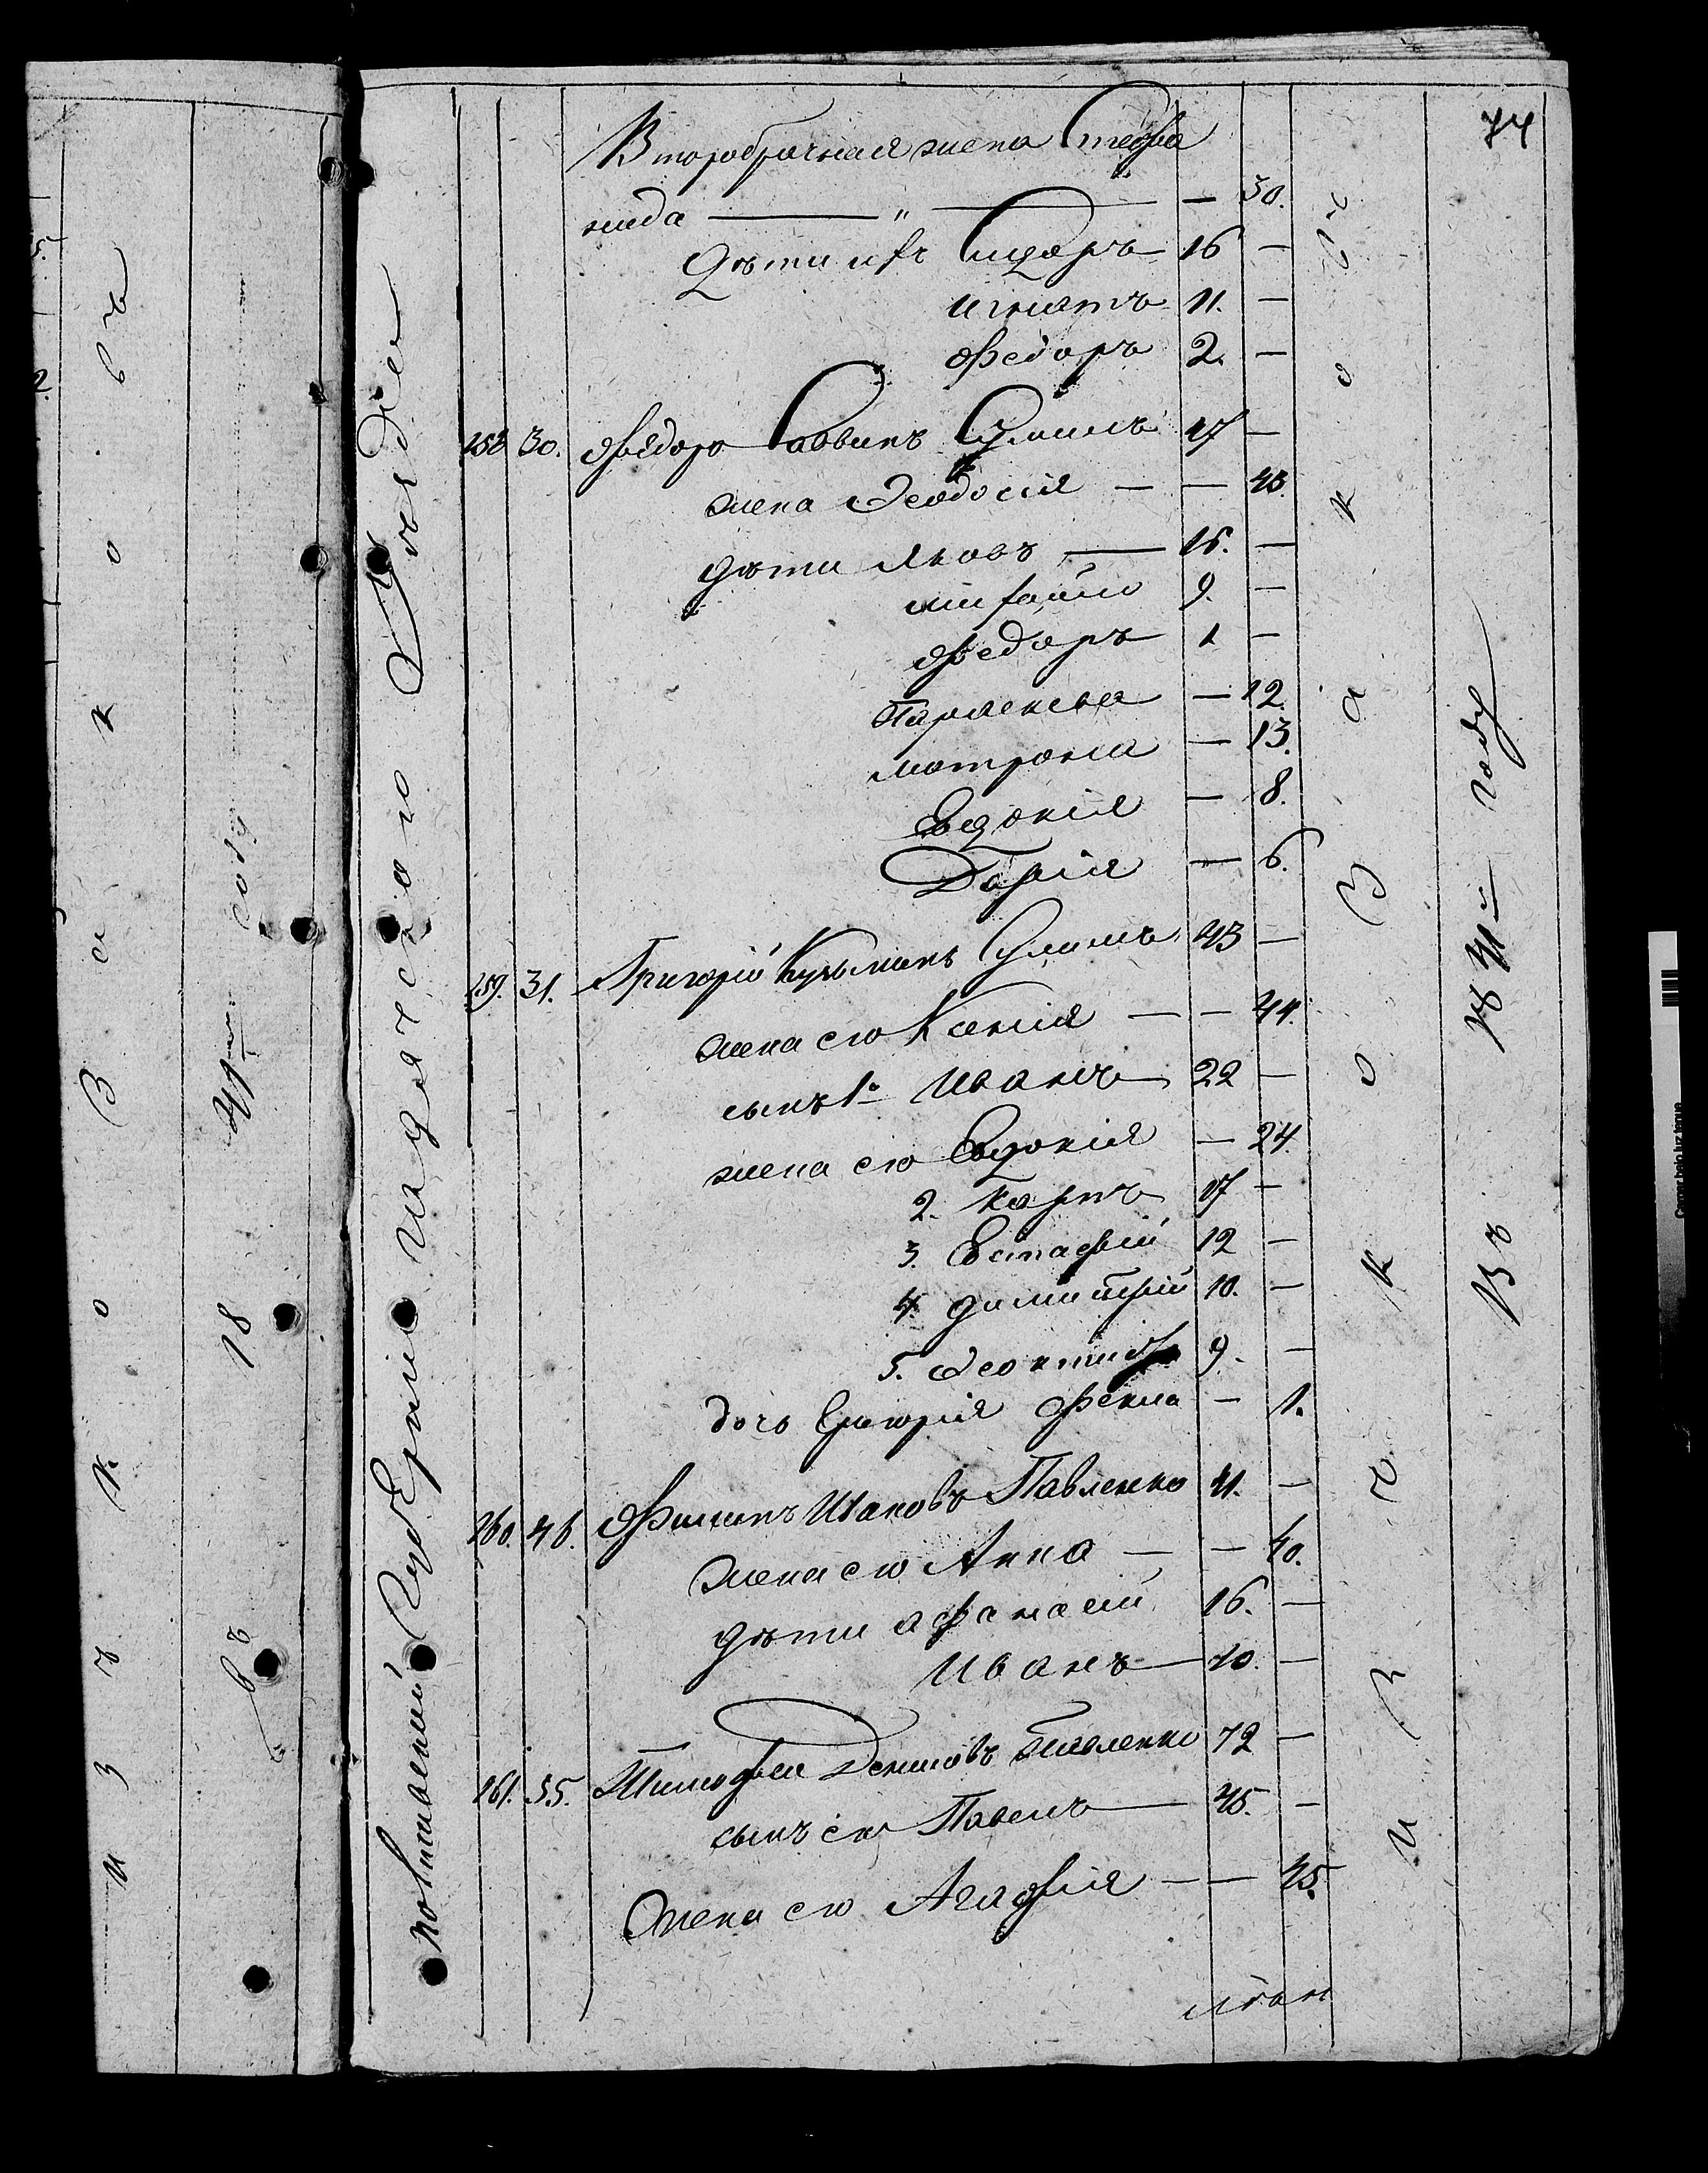 74
Второбрачная жена Стефа
нида — " — — 30.
Дѣти ихъ Сидоръ 16 —
Игнатъ 11. —
Федоръ 2. —
158 30. Федоръ Саввинъ Сулимъ 47 —
жена Феодосія — — 43.
дѣти Яковъ — 15. —
Михайло 9. —
Федоръ 1 —
Параскева — 12.
Матрона — 13.
Евдокія — 8.
Дарія — 6.
159. 31. Григорій Кузьминъ Сулимъ 43 —
жена его Ксенія — — 44.
сынъ 1й Иванъ 22 —
жена его Евдокія — 24.
2. Карпъ 17 —
3. Евстафій 12 —
4. Димитрій 10. —
5. Феоктистъ 9. —
дочь Григорія Фекла — 1.
160. 46. Филипъ Ивановъ Павленко 41. —
жена его Анна — — 40.
дѣти Афанасій 16. —
Иванъ 10. —
161. 55. Тимофей Демидовъ Павленко 72 —
сынъ его Павелъ — 45. —
жена его Агафія — — 45.
Губерніи
Уѣзда
изъ казаковъ
въ 1841м году
въ 18 41м году
изъ козаковъ